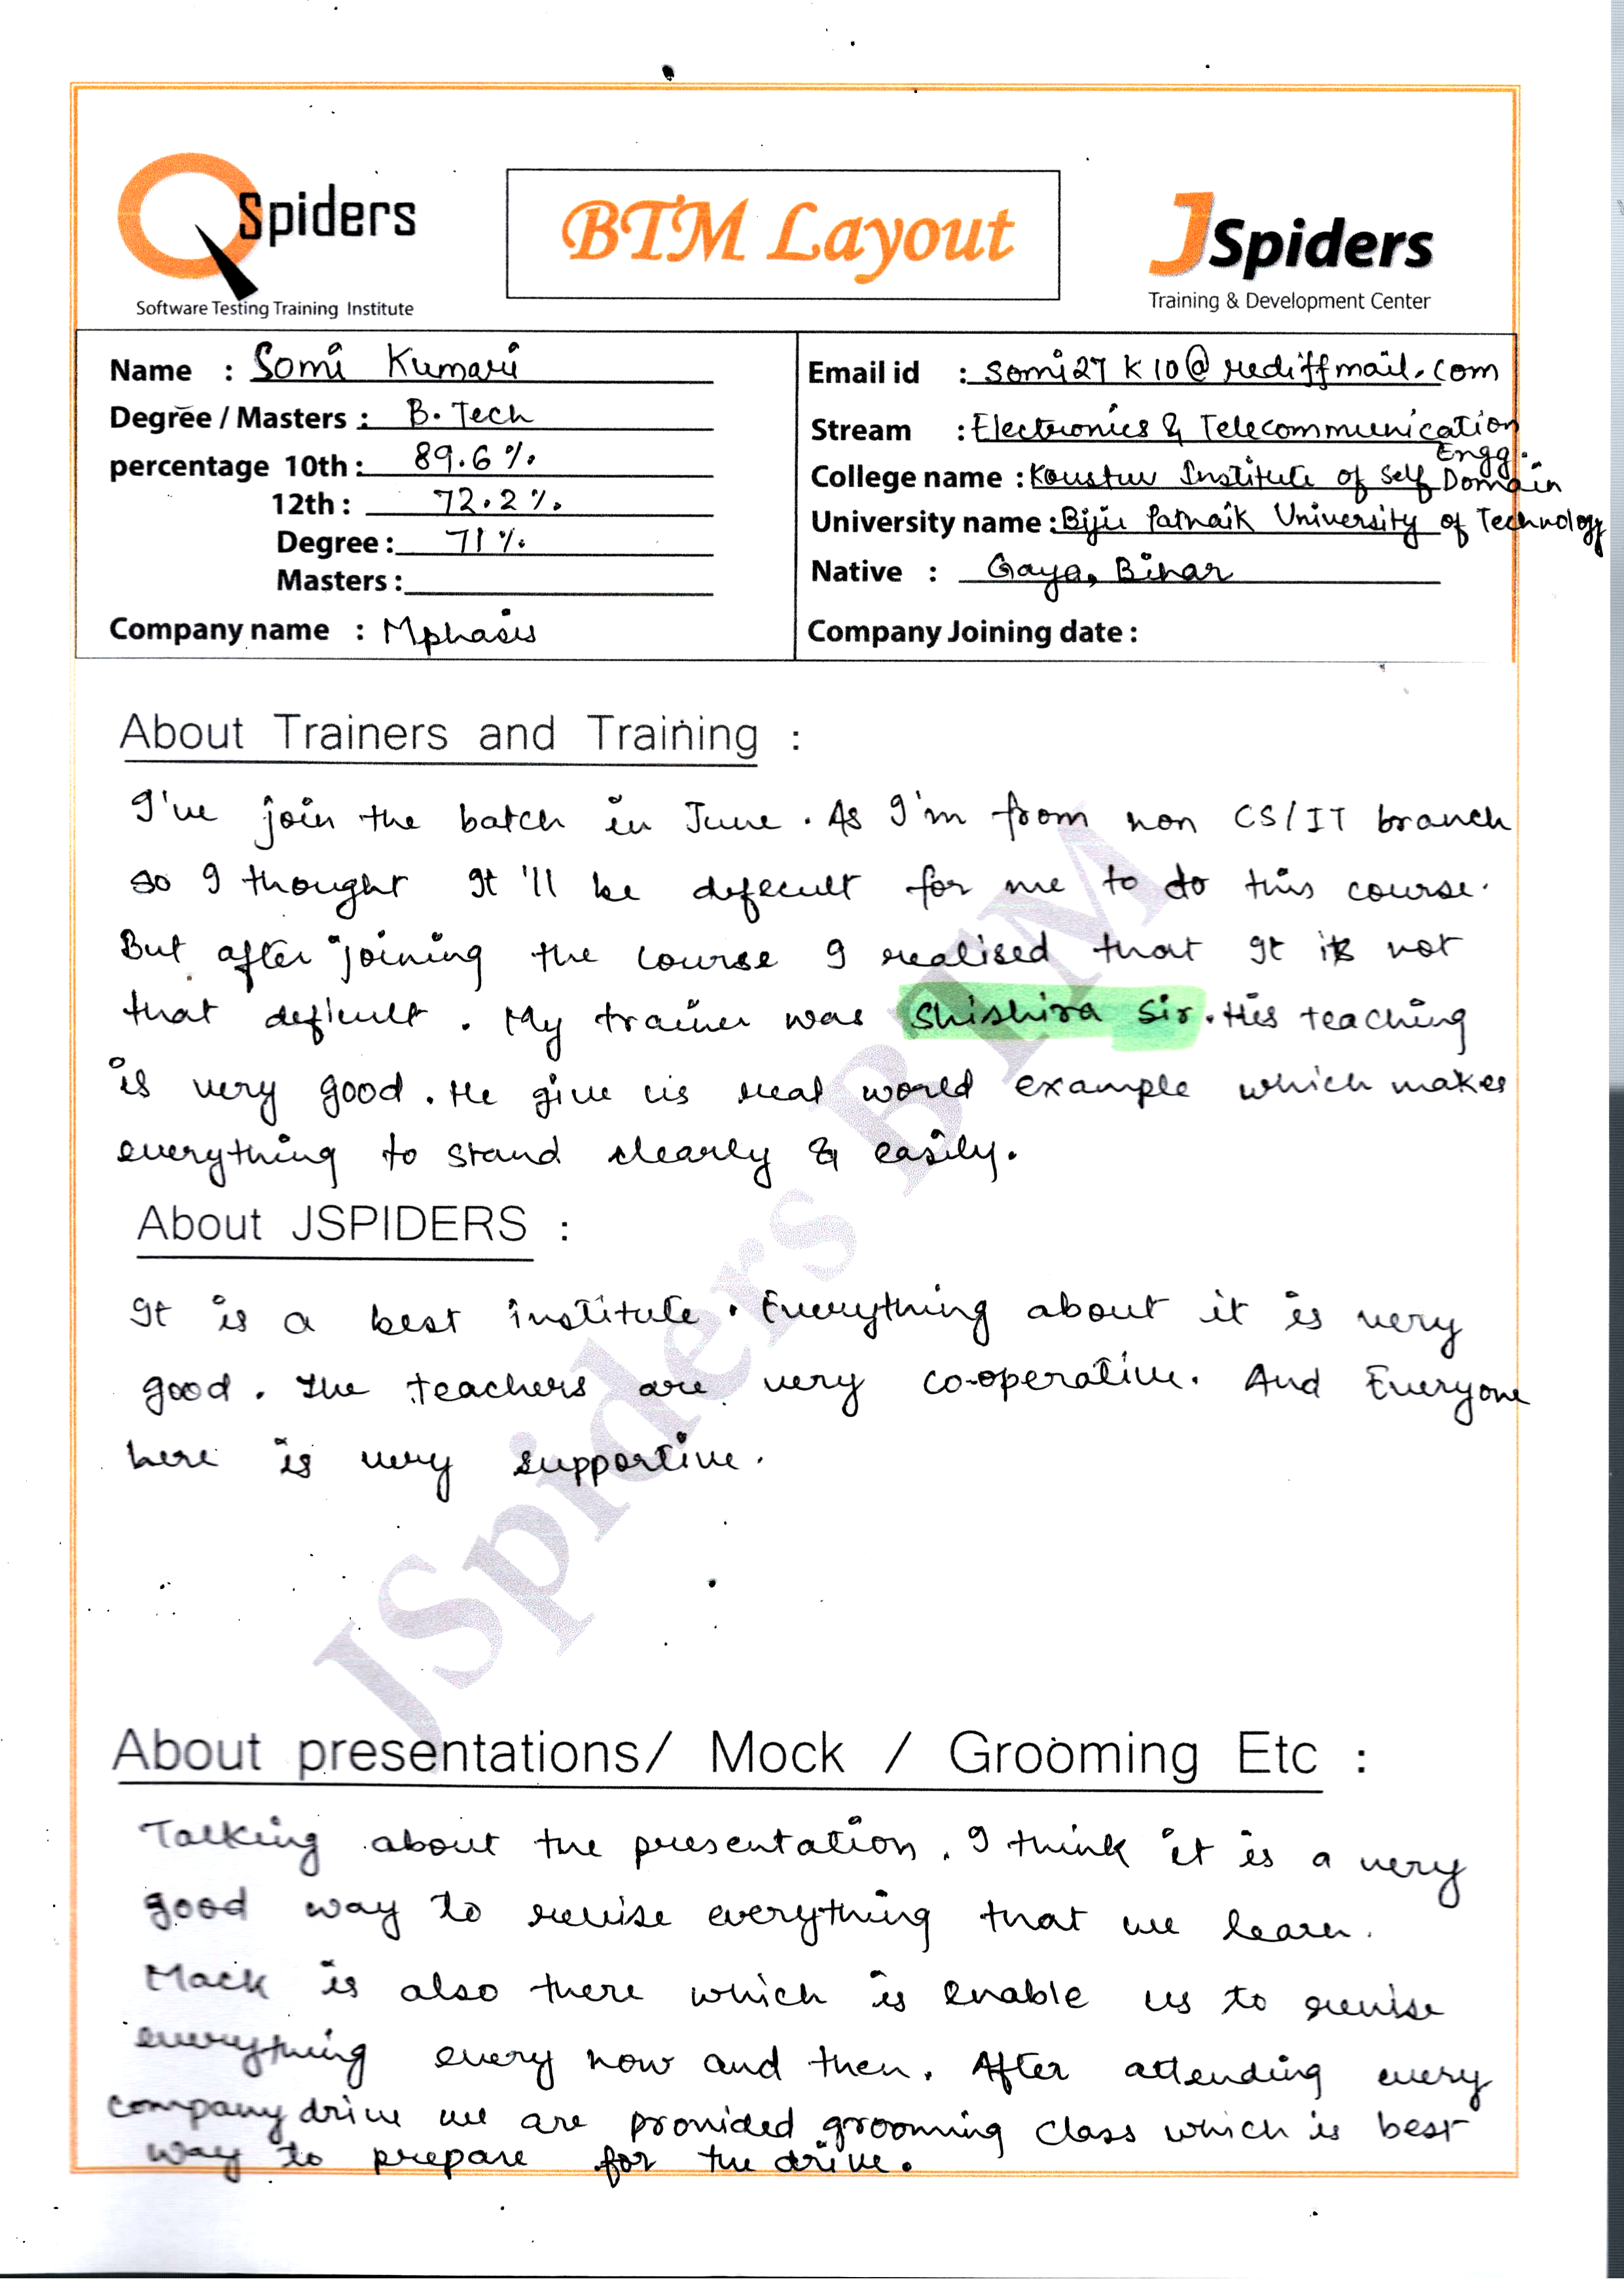 QSpiders
Software Testing Training Institute
BTM Layout
JSpiders
Training & Development Center
Name : Somi Kumari
Degree / Masters : B.Tech
percentage 10th : 89.6%
12th : 72.2%
Degree : 71%
Masters :
Company name : Mphasis
Email id : somi27k10@rediffmail.com
Stream : Electronics & Telecommunication Engg.
College name : Koustuv Institute of Self Domain
University name : Biju Patnaik University of Technology
Native : Gaya, Bihar
Company Joining date :
About Trainers and Training :
I've join the batch in June. As I'm from non CS/IT branch
so I thought It'll be defecult for me to do this course.
But after joining the course I realised that It is not
that deficult. My trainer was Shishira Sir. His teaching
is very good. He give us real world example which makes
everything to stand clearly & easily.
About JSPIDERS :
It is a best institute. Everything about it is very
good. The teachers are very co-operative. And Everyone
here is very supportive.
About presentations/ Mock / Grooming Etc :
Talking about the presentation, I think it is a very
good way to revise everything that we learn.
Mock is also there which is enable us to revise
everything every now and then. After attending every
company drive we are provided grooming class which is best
way to prepare for the drive.
JSpiders BTM